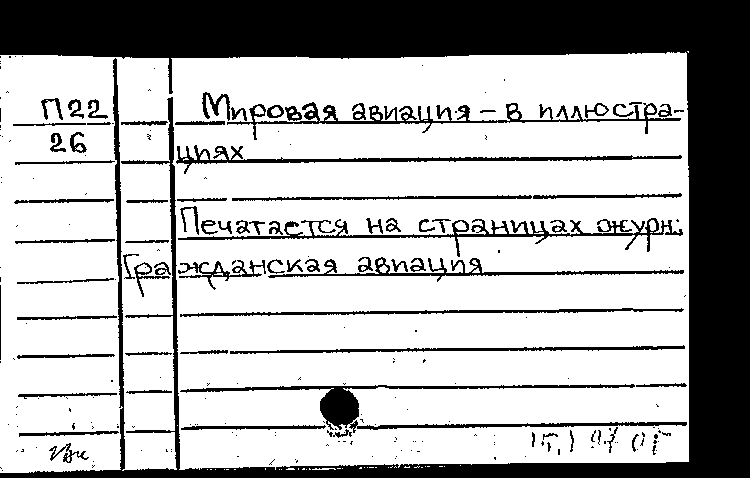 П22
26
Мировая авиация – в иллюстра-
циях
Печатается на страницах журн:
Гражданская авиация